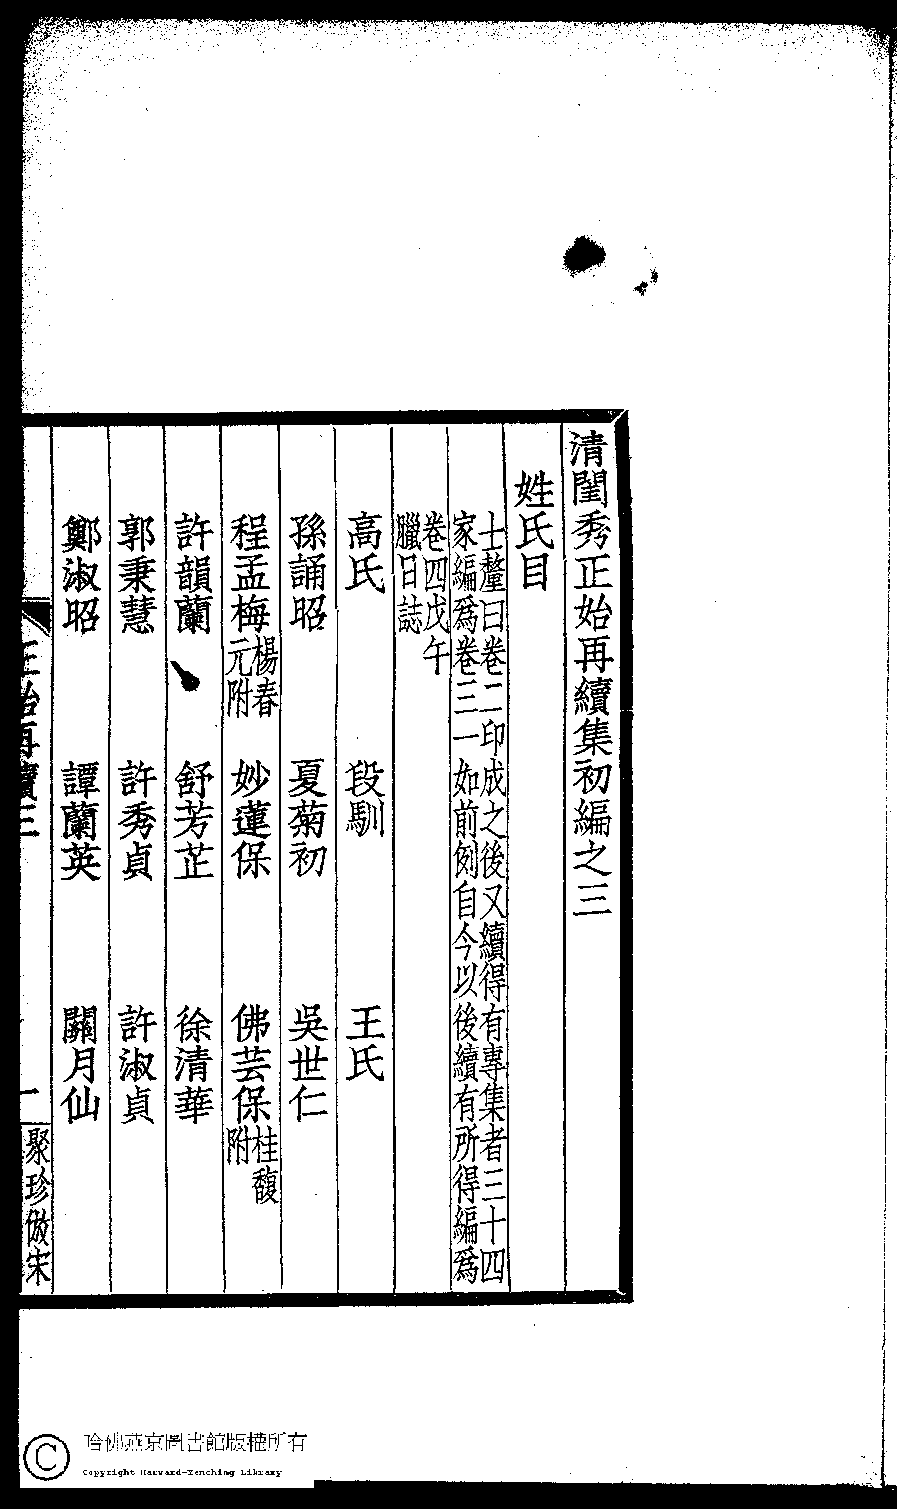 清閨秀正始再續集初編之三
姓氏目
士釐曰卷二印成之後又續得有專集者三十四
家編爲卷三一如前例自今以後續有所得編爲
卷四戊午
臘日誌
高氏 段馴 王氏
孫誦昭 夏菊初 吳世仁
程孟梅楊春元附 妙蓮保 佛芸保桂馥附
許韻蘭 舒芳芷 徐清華
郭秉慧 許秀貞 許淑貞
鄭淑昭 譚蘭英 關月仙
正始再續三 一 聚珍倣宋
哈佛燕京圖書館版權所有
Copyright Harvard-Yenching Library